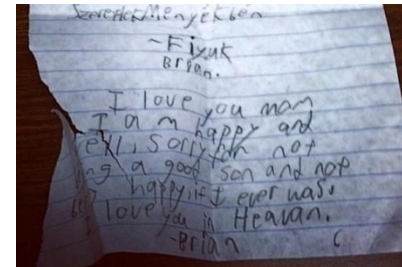 SzeretlekMenyékben
~Fiyuk
Brian.
I love you mom
I am happy and
ell, sorry for not
ng a good son and not
happy, if I ever was.
I love you in Heavan.
-Brian